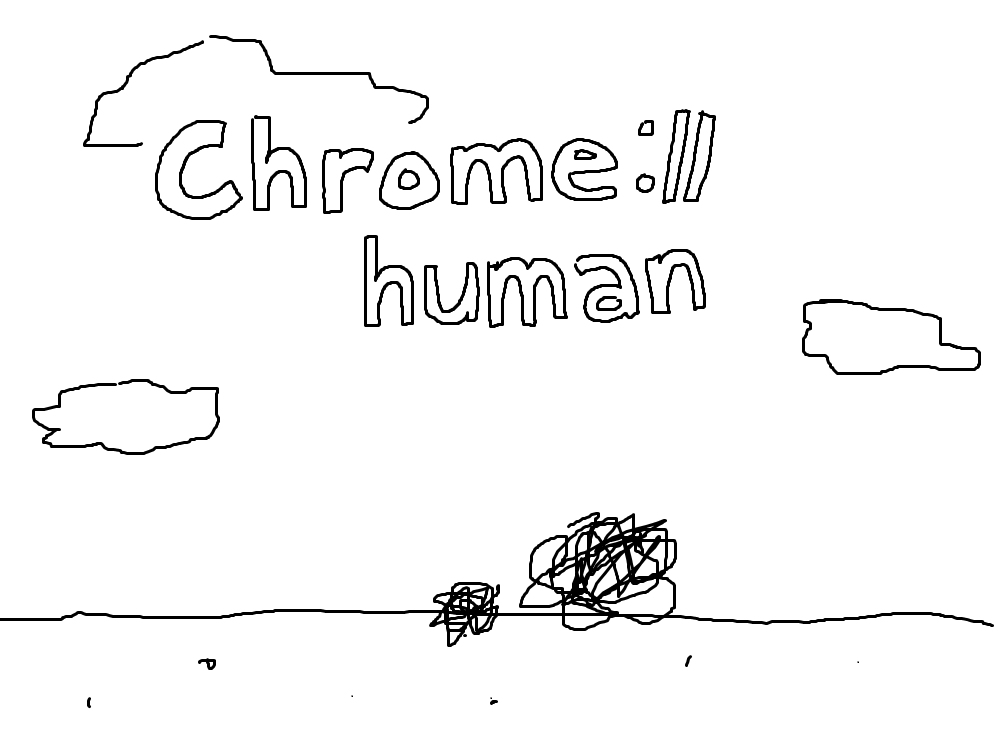 Chrome://
human